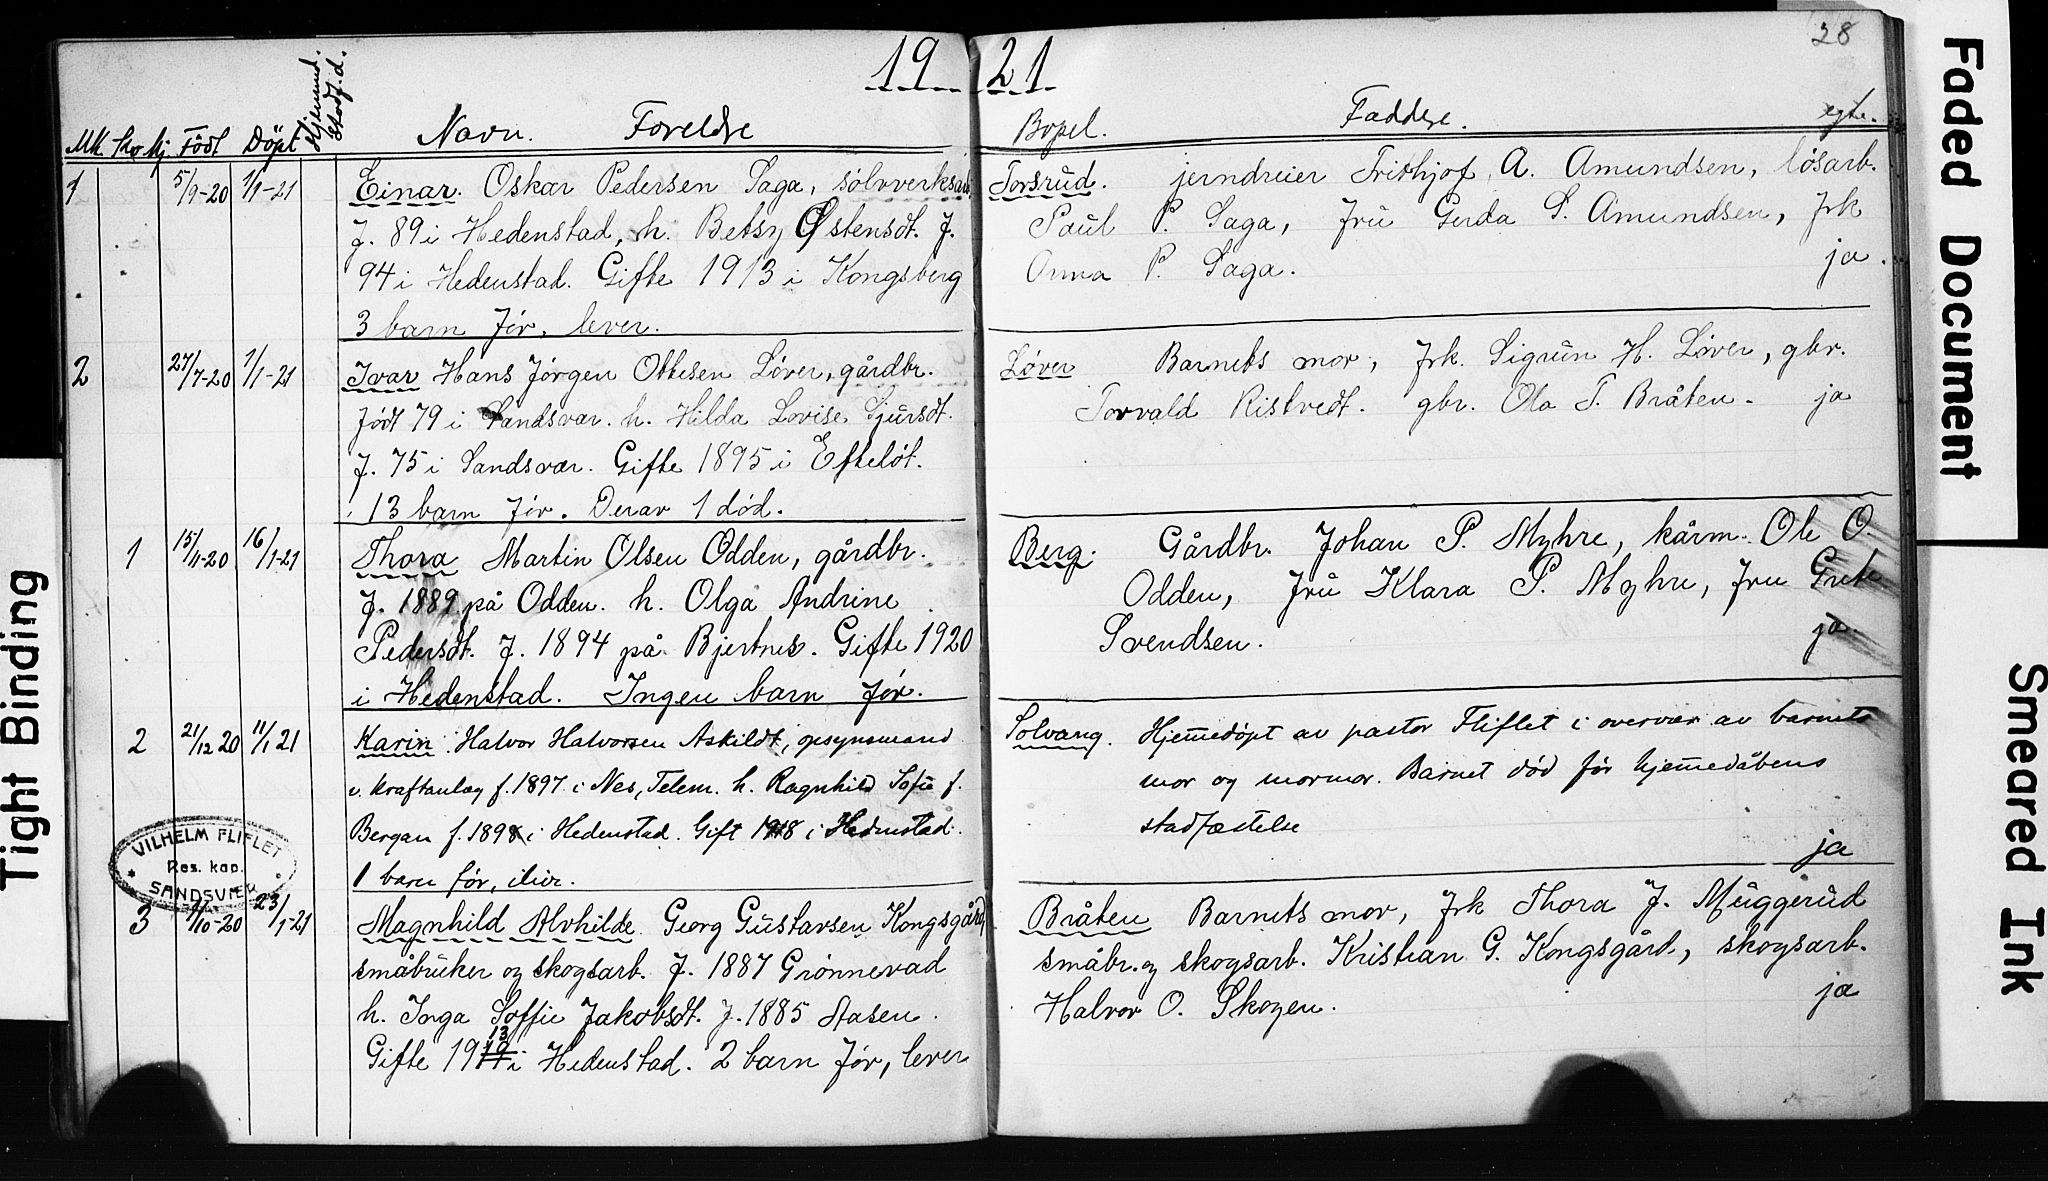 19 21
28
Mk. Kv. kj. Födt Döpt Hjemmed. Stadf. d. Navn. Foreldre
Bopel. Faddere. egte.
1 5/9-20 1/1-21 Einar. Oskar Pedersen Saga, sølvverksarb.
f. 89 i Hedenstad, h. Betsy Østensdt. f.
94 i Hedenstad. Gifte 1913 i Kongsberg
3 barn før, lever.
Torsrud. jerndreier Frithjof A. Amundsen, løsarb.
Paul P. Saga, fru Gerda S. Amundsen, frk
Anna P. Saga. ja.
2 27/7-20 1/1-21 Ivar Hans Jørgen Ottesen Løver, gårdbr.
født 79 i Sandsvær. h. Hilda Lovise Sjursdt.
f. 75 i Sandsvær. Gifte 1895 i Efteløt.
13 barn før. Derav 1 død.
Løver Barnets mor, frk. Sigrun H. Løver, gbr.
Torvald Ristvedt. gbr. Ola T. Bråten. ja
1 15/11-20 16/1-21 Thora Martin Olsen Odden, gårdbr.
f. 1889 på Odden. h. Olga Andrine
Pedersdt. f. 1894 på Bjertnes. Gifte 1920
i Hedenstad. Ingen barn før.
Berg. Gårdbr. Johan P. Myhre, kårm. Ole O.
Odden, fru Klara P. Myhre, fru Grete
Svendsen. ja.
2 21/12 20 11/1 21 Karin. Halvor Halvorsen Askildt, opsynsmand
v. kraftanlæg f. 1897 i Nes, Telem. h. Ragnhild Sofie f.
Bergan f. 1898 i Hedenstad. Gift 1918 i Hedenstad.
1 barn før, i live.
Solvang. Hjemmedøpt av pastor Fliflet i overvær av barnets
mor og mormor. Barnet død før hjemmedåbens
stadfæstelse
ja
VILHELM FLIFLET
Res. kap.
SANDSVÆR
3 9/10-20 23/1-21 Magnhild Alvhilde. Georg Gustavsen Kongsgård
småbruker og skogsarb. f. 1887 Grønnevad
h. Inga Soffie Jakobsdt. f. 1885 Aasen.
Gifte 1913 i Hedenstad. 2 barn før, lever
Bråten Barnets mor, frk Thora J. Muggerud
småbr. og skogsarb. Kristian G. Kongsgård, skogsarb.
Halvor O. Skogen. ja
Tight Binding
Faded Document
Smeared Ink